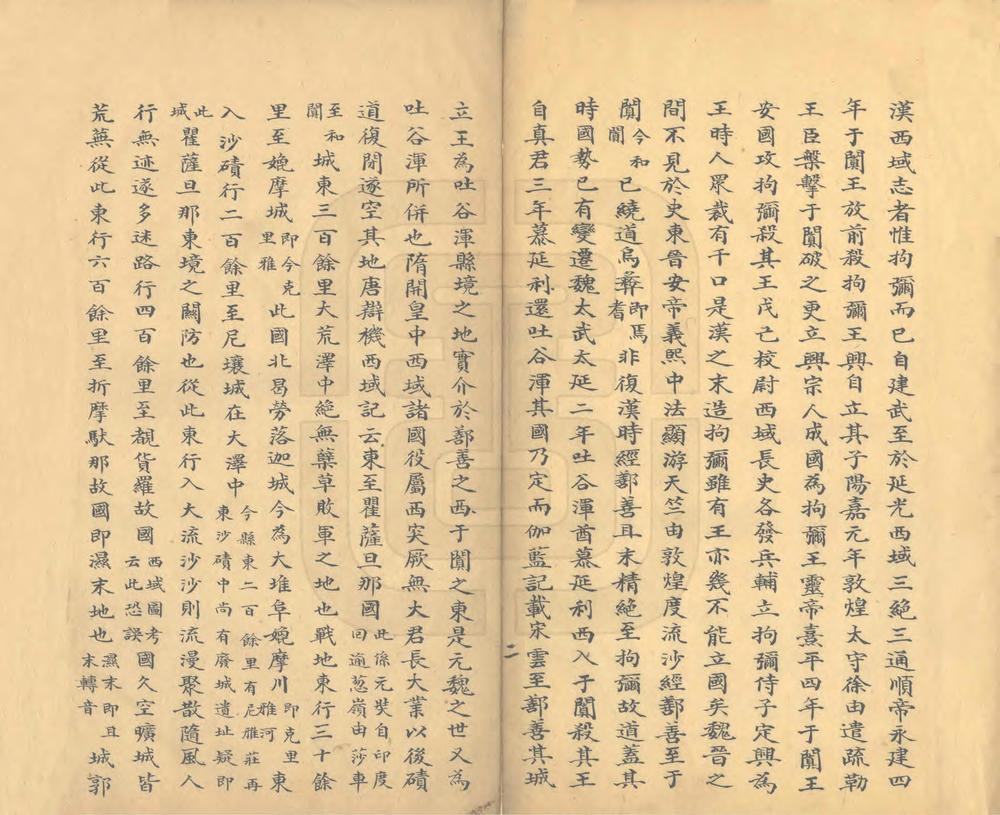 漢西域志者惟拘彌而已自建武至於延光西域三絕三通順帝永建四
年于闐王放前殺拘彌王興自立其子陽嘉元年敦煌太守徐由遣疏勒
王臣槃擊于闐破之更立興宗人成國為拘彌王靈帝熹平四年于闐王
安國攻拘彌殺其王戊己校尉西域長史各發兵輔立拘彌侍子定興為
王時人眾裁有千口是漢之末造拘彌雖有王亦幾不能立國矣魏晉之
間不見於史東晉安帝義熙中法顯游天竺由敦煌度流沙經鄯善至于
闐今和闐已繞道烏彝即焉耆非復漢時經鄯善且末精絕至拘彌故道蓋其
時國勢已有變遷魏太武太延二年吐谷渾酋慕延利西入于闐殺其王
自真君三年慕延利還吐谷渾其國乃定而伽藍記載宋雲至鄯善其城
二
立王為吐谷渾縣境之地實介於鄯善之西于闐之東是元魏之世又為
吐谷渾所併也隋開皇中西域諸國役屬西突厥無大君長大業以後磧
道復閉遂空其地唐辯機西域記云東至瞿薩旦那國此係元奘自印度回逾蔥嶺由莎車
至和闐城東三百餘里大荒澤中絕無蘗草敗軍之地也戰地東行三十餘
里至媲摩城即今克里雅此國北曷勞落迦城今為大堆阜媲摩川即克里雅河東
入沙磧行二百餘里至尼壤城在大澤中今縣東二百餘里有尼雅莊再東沙磧中尚有廢城遺址疑即
此城瞿薩旦那東境之關防也從此東行入大流沙沙則流漫聚散隨風人
行無迹遂多迷路行四百餘里至覩貨羅故國西域圖考云此恐誤國久空曠城皆
荒蕪從此東行六百餘里至折摩馱那故國即濕末地也濕末即且末轉音城郭